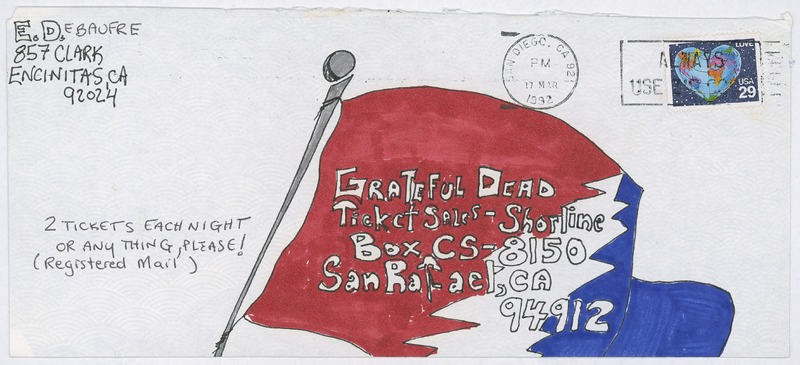 E. DEBAUFRE
857 CLARK
ENCINITAS, CA
92024
SAN DIEGO, CA 921
PM
17 MAR
1992
ALWAYS
USE
LOVE
USA
29
GRATEFUL DEAD
Ticket Sales - Shorline
Box CS-8150
San Rafael, CA
94912
2 TICKETS EACH NIGHT
OR ANY THING, PLEASE!
(Registered Mail)